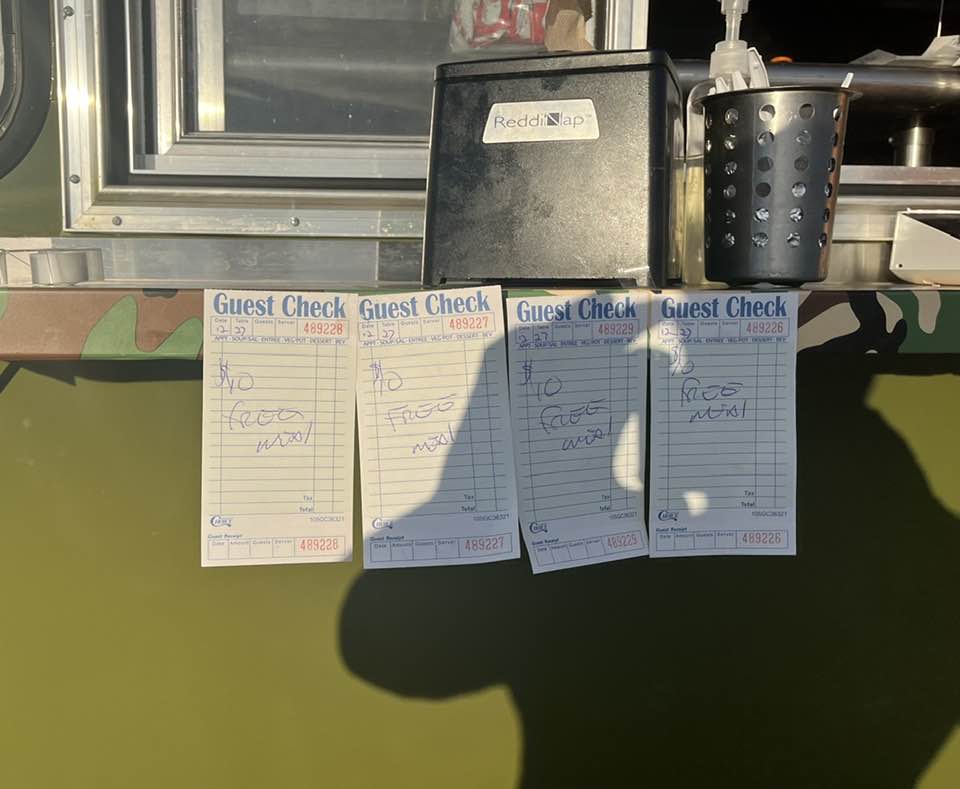 ReddiNap™
Guest Check
Date Table Guests Server 489228
12 27
APPT SOUP/SAL ENTREE VEG/POT DESSERT BEV
$10
FREE
MEAL
Tax
Total
105GC36321
Guest Receipt
Date Amount Guests Server 489228
Guest Check
Date Table Guests Server 489227
12 27
APPT SOUP/SAL ENTREE VEG/POT DESSERT BEV
$10
FREE
MEAL
Tax
Total
105GC36321
Guest Receipt
Date Amount Guests Server 489227
Guest Check
Date Table Guests Server 489229
12 27
APPT SOUP/SAL ENTREE VEG/POT DESSERT BEV
$10
FREE
MEAL
Tax
Total
105GC36321
Guest Receipt
Date Amount Guests Server 489229
Guest Check
Date Table Guests Server 489226
12 27
APPT SOUP/SAL ENTREE VEG/POT DESSERT BEV
$10
FREE
MEAL
Tax
Total
105GC36321
Guest Receipt
Date Amount Guests Server 489226